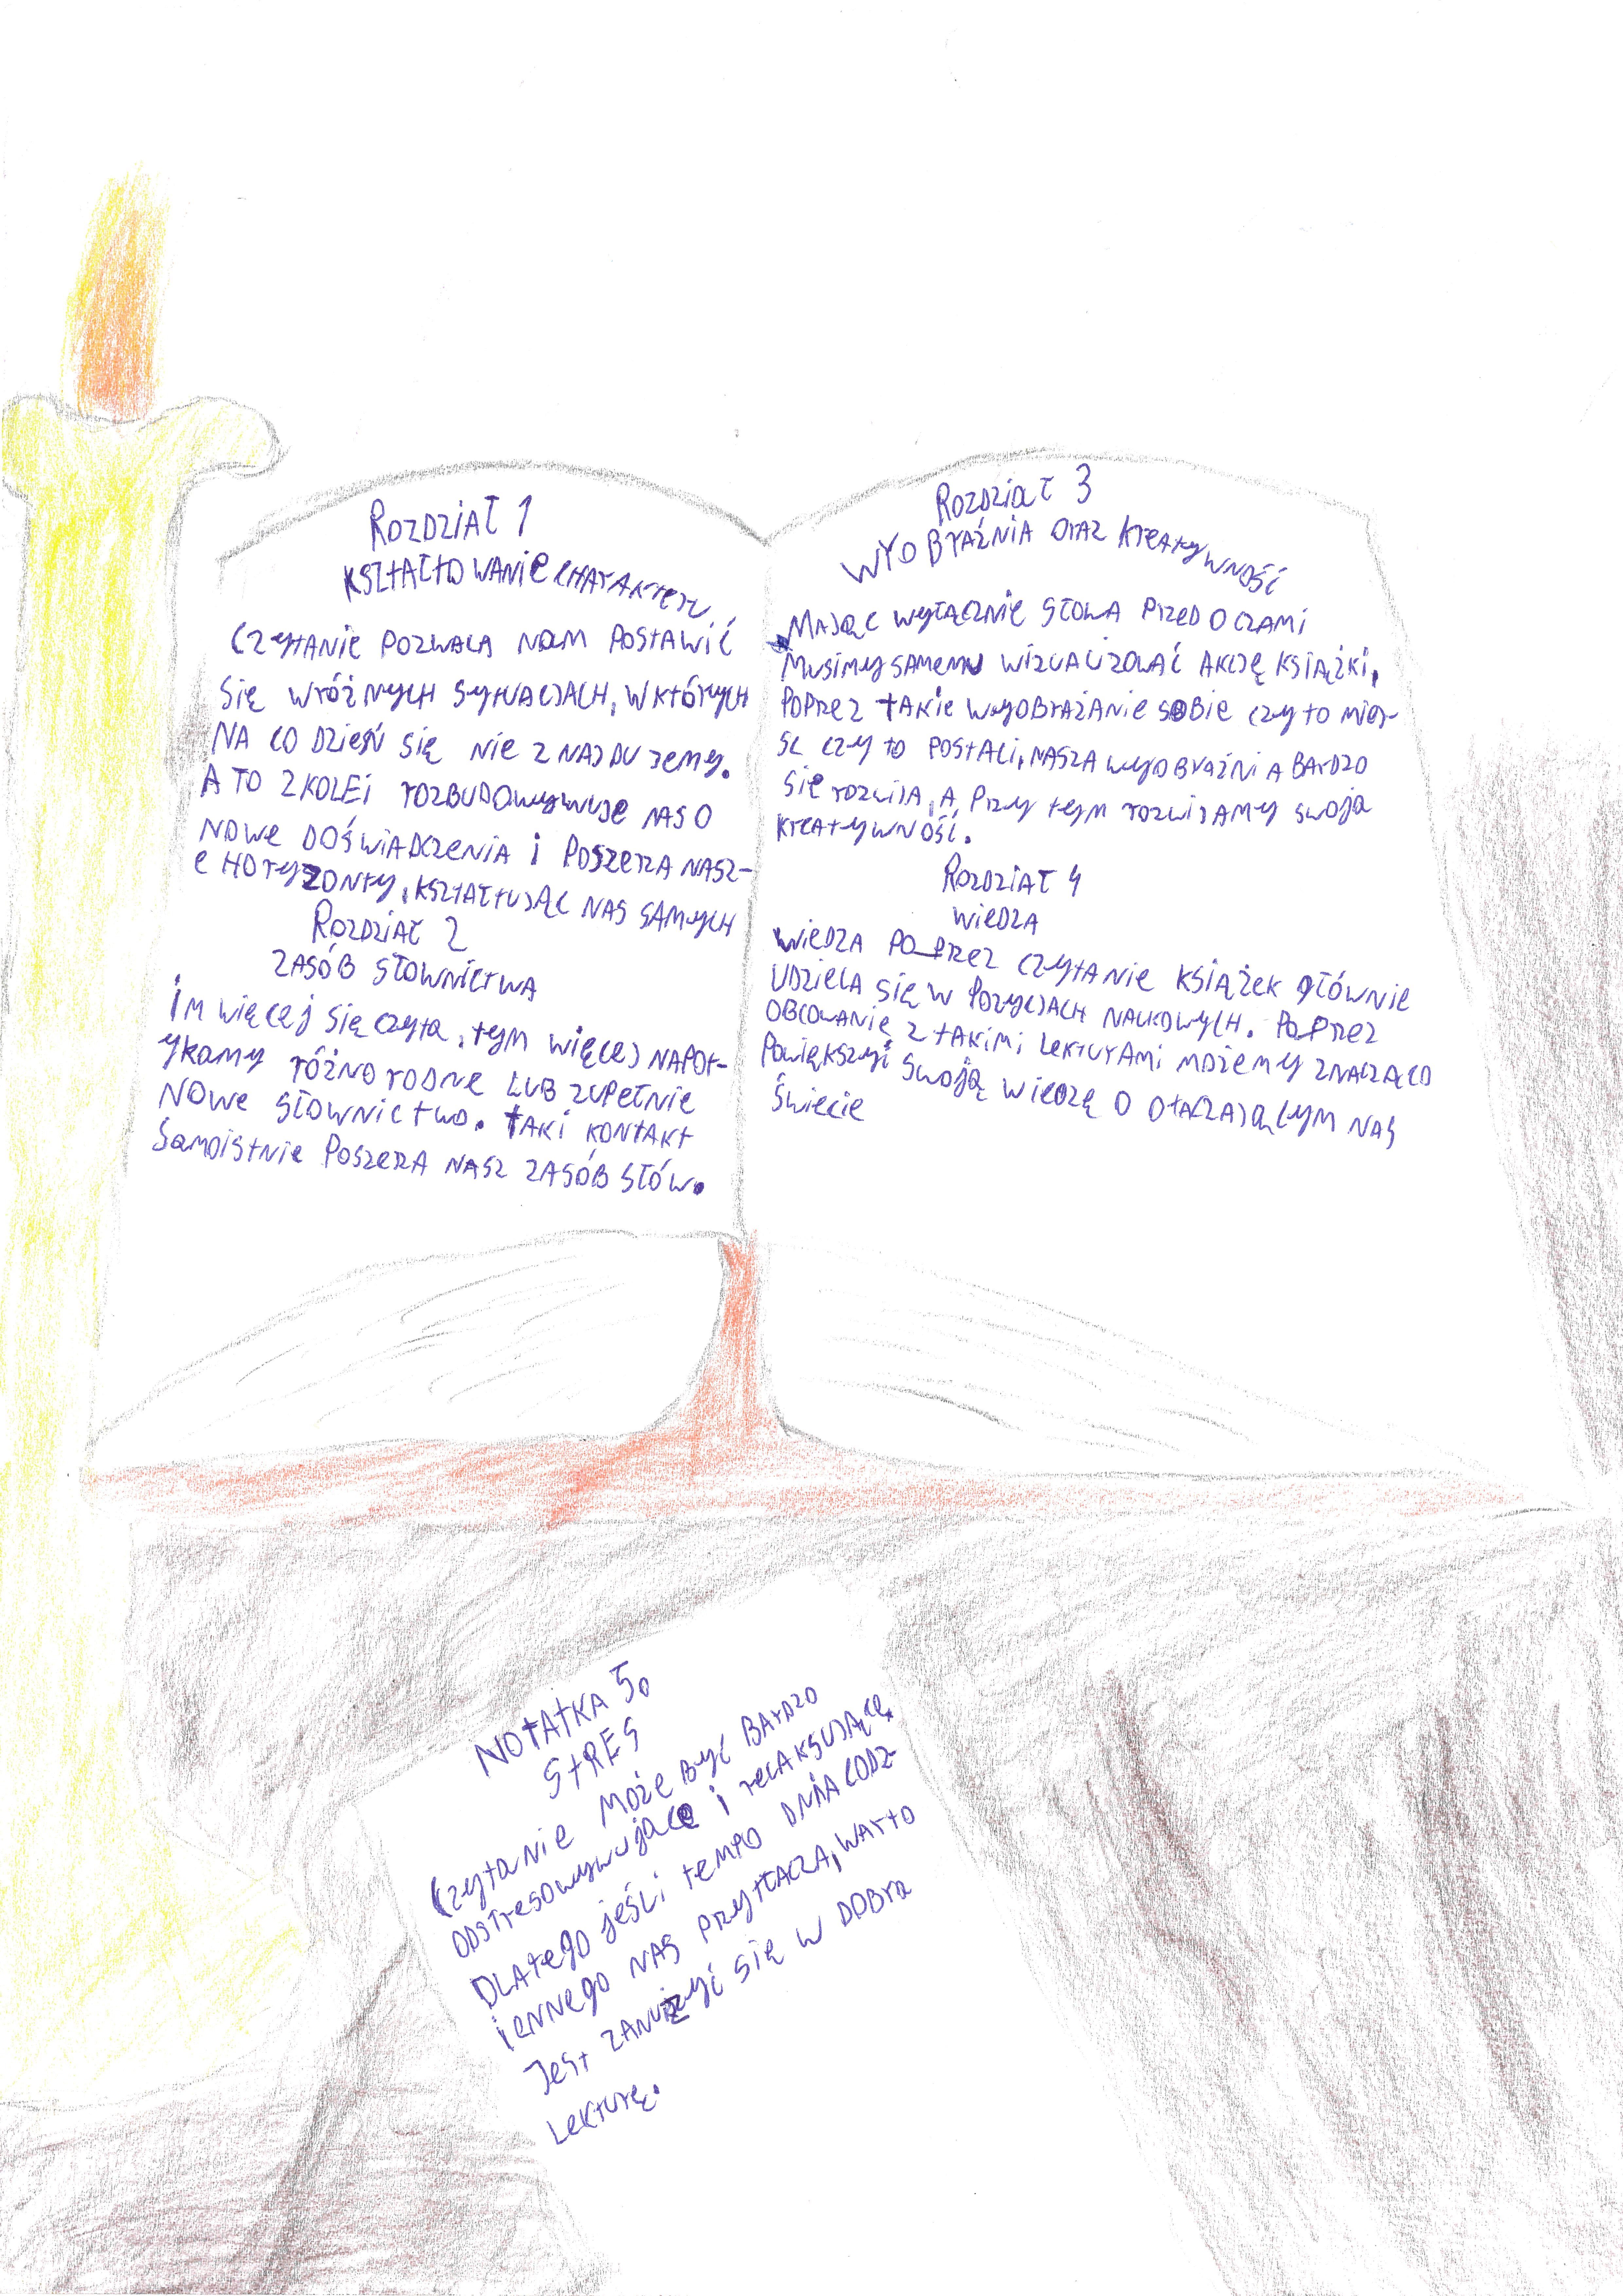 Rozdział 1
Kształtowanie charakteru
Czytanie pozwala nam postawić
się w różnych sytuacjach, w których
na co dzień się nie znajdujemy.
A to z kolei rozbudowywuje nas o
nowe doświadczenia i poszerza nasz-
e horyzonty, kształtując nas samych
Rozdział 2
Zasób słownictwa
Im więcej się czyta, tym więcej napot-
ykamy różnorodne lub zupełnie
nowe słownictwo. Taki kontakt
samoistnie poszerza nasz zasób słów.
Rozdział 3
Wyobraźnia oraz kreatywność
Mając wyłącznie słowa przed oczami
musimy samemu wizualizować akcję książki,
poprzez takie wyobrażanie sobie czy to miej-
sc czy to postaci, nasza wyobraźnia bardzo
się rozwija, a przy tym rozwijamy swoja
kreatywność.
Rozdział 4
Wiedza
Wiedza poprzez czytanie książek głównie
udziela się w pozycjach naukowych. Poprzez
obcowanie z takimi lekturami możemy znacząco
powiększyć swoją wiedzę o otaczającym nas
świecie
Notatka 5.
Stres
Czytanie może być bardzo
odstresowywujące i relaksujące,
Dlatego jeśli tempo dnia codz-
iennego nas przytłacza, warto
jest zanurzyć się w dobra
lekturę.